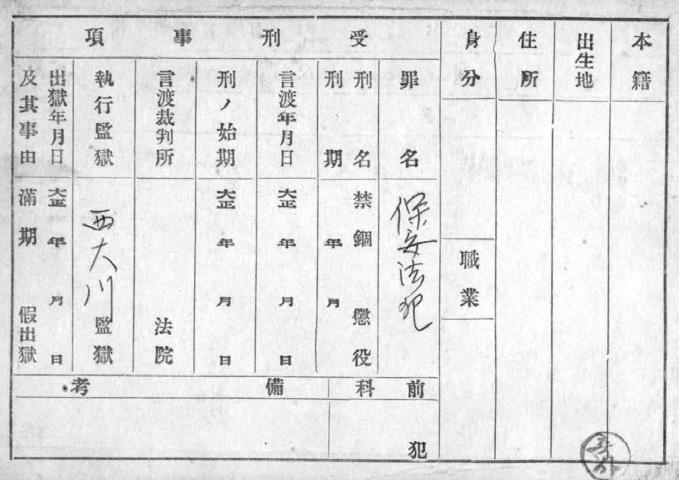 本籍
出生地
住所
身分
職業
受刑事項
罪名 保安法犯
刑名 禁錮 懲役
刑期 年 月
言渡年月日 大正 年 月 日
刑ノ始期 大正 年 月 日
言渡裁判所 法院
執行監獄 西大門監獄
出獄年月日 大正 年 月 日
及其事由 滿期 假出獄
前科 犯
備考